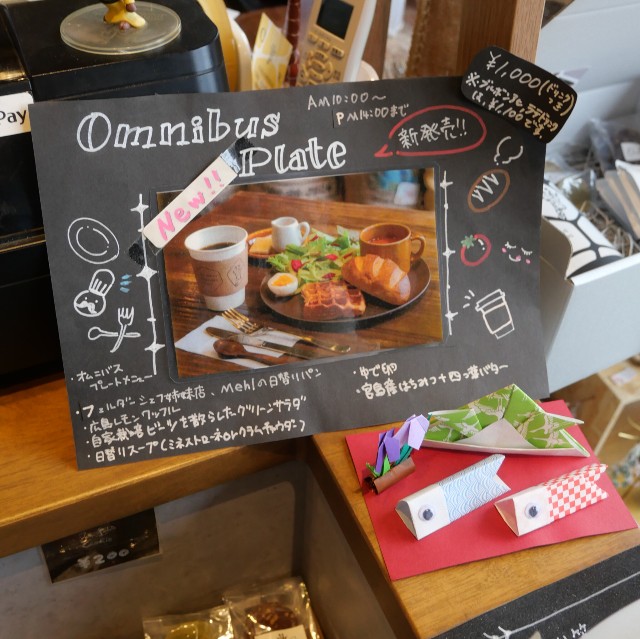 Pay
Omnibus
Plate
AM10:00～
PM14:00まで
新発売!!
¥1,000(ドリンク
New!!
・オムニバス
プレートメニュー
・フェルダーシェフ姉妹店、Mehlの日替りパン
・広島レモンワッフル
・自家栽培ビーツを散らしたグリーンサラダ
・日替りスープ(ミネストローネorクラムチャウダー)
・ゆで卵
・宮島産はちみつ+四つ葉バター